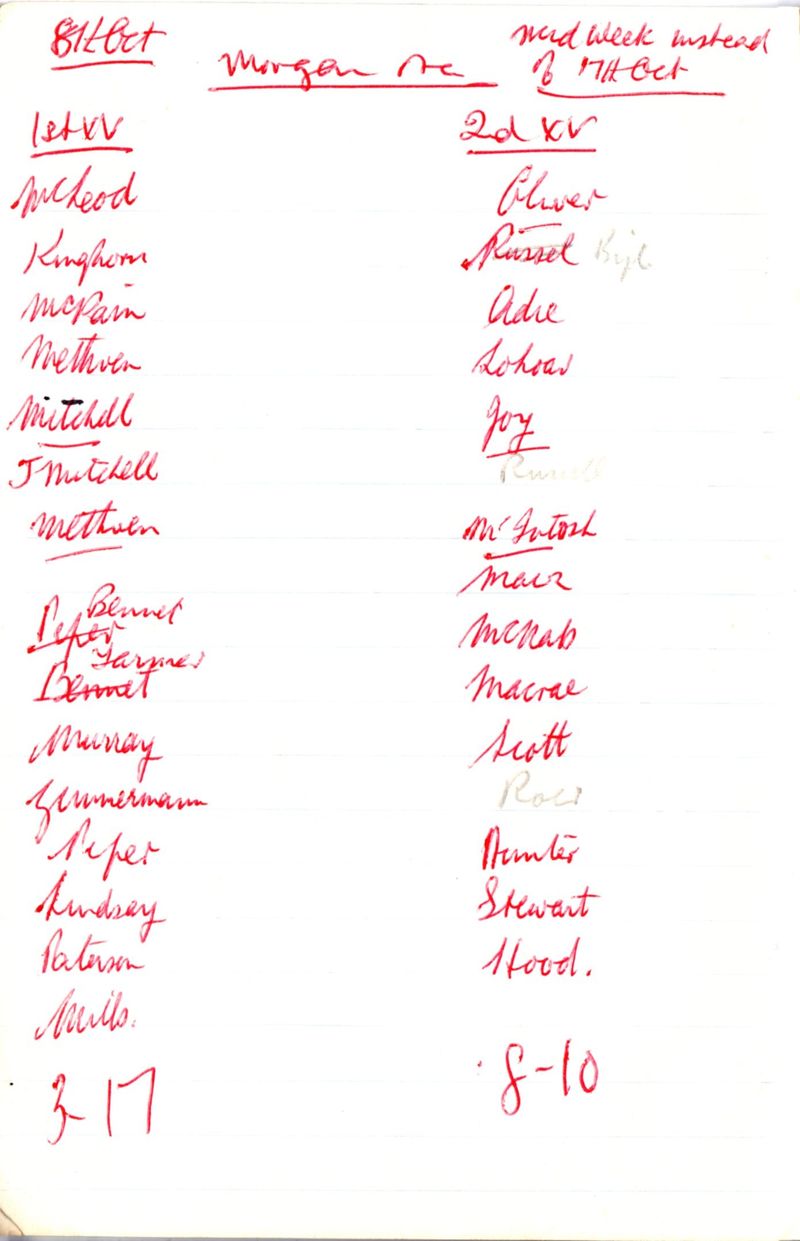 8th Oct
Morgan Ac
mid week instead
of 17th Oct
1st XV
McLeod
Kinghorn
McBain
Methven
Mitchell
J Mitchell
Methven
Bennet
Peper
Farmer
Bennet
Murray
Zimmermann
Peper
Lindsay
Paterson
Mills.
3-17
2nd XV
Oliver
Russel
Adie
Lohoar
Joy
Russell
McIntosh
Mair
McNab
Macrae
Scott
Hunter
Stewart
Hood.
8-10